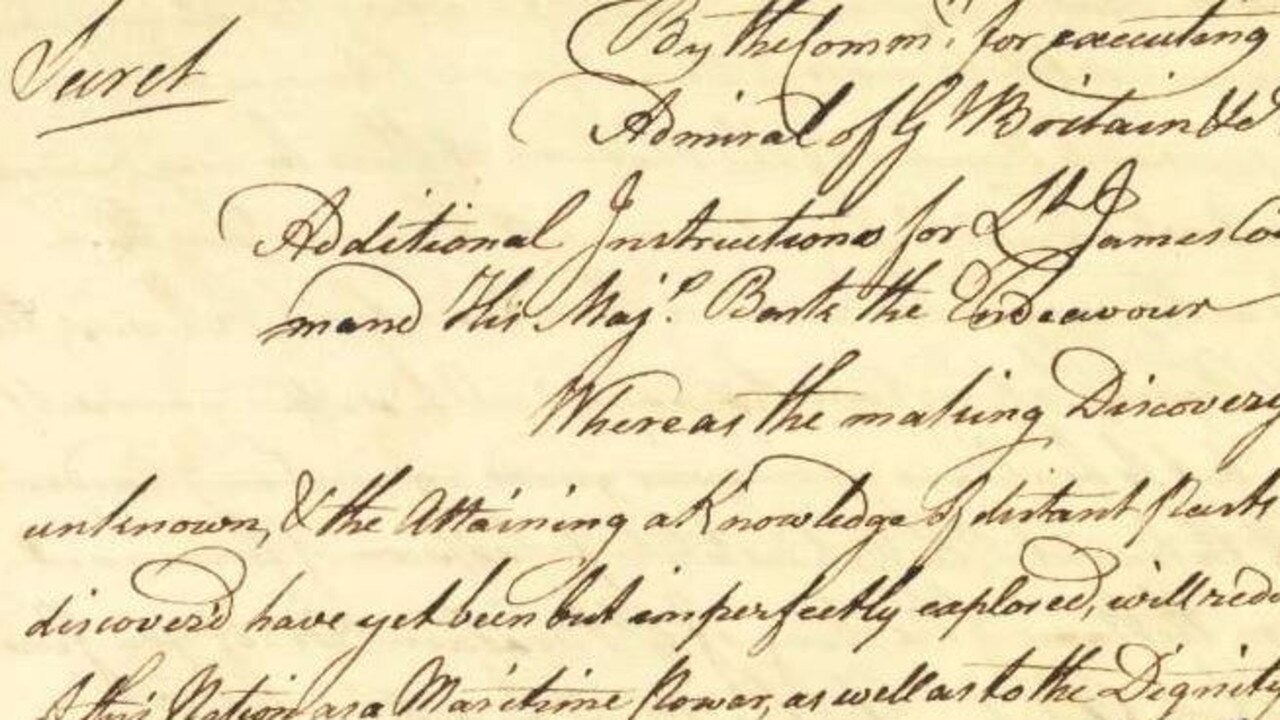 Secret
By the Comm.rs for executing
Admiral of G Britain &c
Additional Instructions for Lt. James Coo
mand His Maj.s Bark the Endeavour
Whereas the making Discovery
unknown, & the Attaining a Knowledge of distant Parts
discover'd have yet been but imperfectly explored, will redo
of this Nation as a Maritime Power, as well as to the Dignity